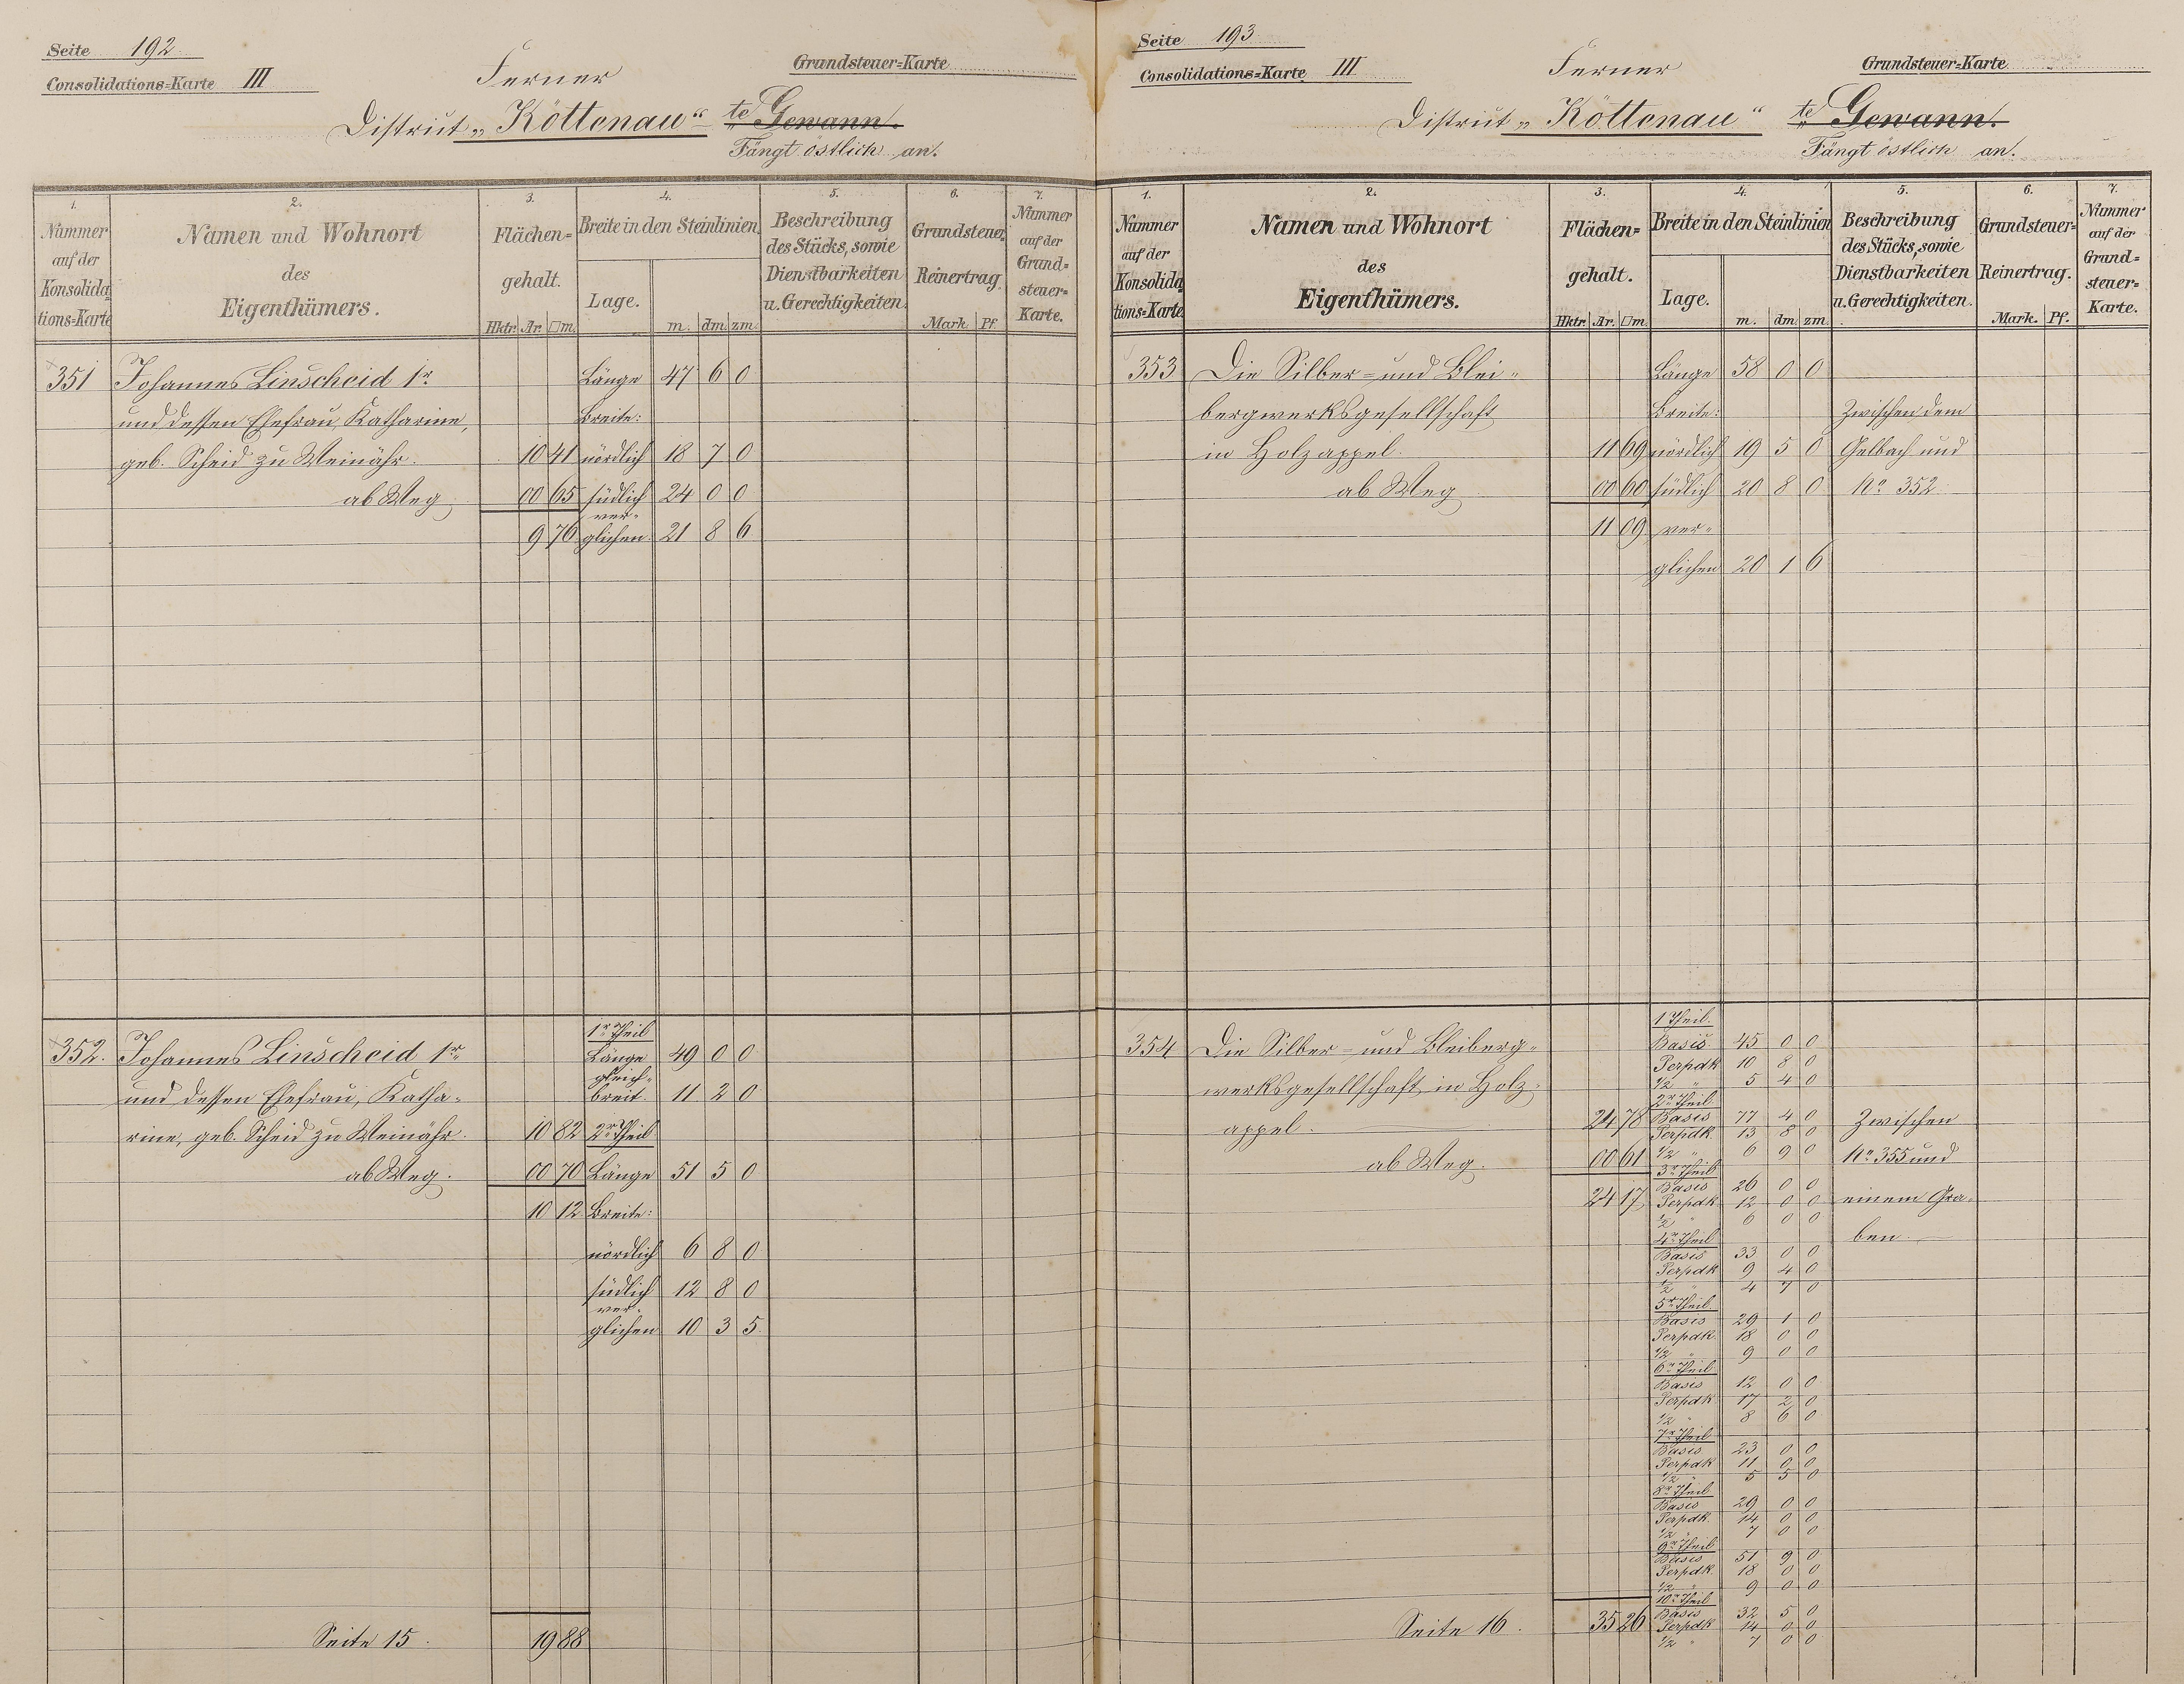 Seite 192
Consolidations=Karte III
Ferner
Grundsteuer=Karte
Distrikt „Köttenau“ te Gewann.
Fängt östlich an.
1. 2. 3. 4. 5. 6. 7.
Nummer auf der Konsolida tions=Karte
Namen und Wohnort des Eigenthümers.
Flächen= gehalt.
Hktr. Ar. □m.
Breite in den Steinlinien
Lage. m. dm. zm.
Beschreibung des Stücks, sowie Dienstbarkeiten u. Gerechtigkeiten.
Grundsteuer= Reinertrag.
Mark. Pf.
Nummer auf der Grund= steuer= Karte.
351 Johannes Linscheid 1r Länge 47 6 0
und dessen Ehefrau, Katharine, Breite:
geb. Scheid zu Weinähr. 10 41 nördlich 18 7 0
ab Weg 00 65 südlich 24 0 0
ver-
9 76 glichen 21 8 6
1r Theil
352. Johannes Linscheid 1r Länge 49 0 0
gleich-
und dessen Ehefrau, Katha- breit. 11 2 0
rine, geb. Scheid zu Weinähr. 10 82 2r Theil
ab Weg. 00 70 Länge 51 5 0
10 12 Breite:
nördlich 6 8 0
südlich 12 8 0
ver-
glichen 10 3 5
Seite 15. 19 88
Seite 193
Consolidations=Karte III
Ferner
Grundsteuer=Karte
Distrikt „Köttenau“ te Gewann.
Fängt östlich an.
1. 2. 3. 4. 5. 6. 7.
Nummer auf der Konsolida tions=Karte
Namen und Wohnort des Eigenthümers.
Flächen= gehalt.
Hktr. Ar. □m.
Breite in den Steinlinien
Lage. m. dm. zm.
Beschreibung des Stücks, sowie Dienstbarkeiten u. Gerechtigkeiten.
Grundsteuer= Reinertrag.
Mark. Pf.
Nummer auf der Grund= steuer= Karte.
353 Die Silber= und Blei- Länge 58 0 0
bergwerksgesellschaft Breite: Zwischen dem
in Holzappel. 11 69 nördlich 19 5 0 Gelbach und
ab Weg 00 60 südlich 20 8 0 No 352
11 09 ver-
glichen 20 1 6
1 Theil.
354 Die Silber= und Bleiberg- Basis 45 0 0
Perpdk 10 8 0
werksgesellschaft in Holz- 1/2 " 5 4 0
2r Theil
appel. 24 78 Basis 77 4 0 Zwischen
Perpdk. 13 8 0
ab Weg. 00 61 1/2 " 6 9 0 No 355 und
3r Theil
24 17 Basis 26 0 0 einem Gra-
Perpdk 12 0 0
1/2 " 6 0 0
4r Theil ben.
Basis 33 0 0
Perpdk 9 4 0
1/2 " 4 7 0
5r Theil.
Basis 29 1 0
Perpdk. 18 0 0
1/2 " 9 0 0
6r Theil
Basis 12 0 0
Perpdk 17 2 0
1/2 " 8 6 0
7r Theil
Basis 23 0 0
Perpdk 11 0 0
1/2 " 5 5 0
8r Theil
Basis 29 0 0
Perpdk. 14 0 0
1/2 " 7 0 0
9r Theil
Basis 51 9 0
Perpdk. 18 0 0
1/2 " 9 0 0
10r Theil
Seite 16. 35 26 Basis 32 5 0
Perpdk 14 0 0
1/2 " 7 0 0